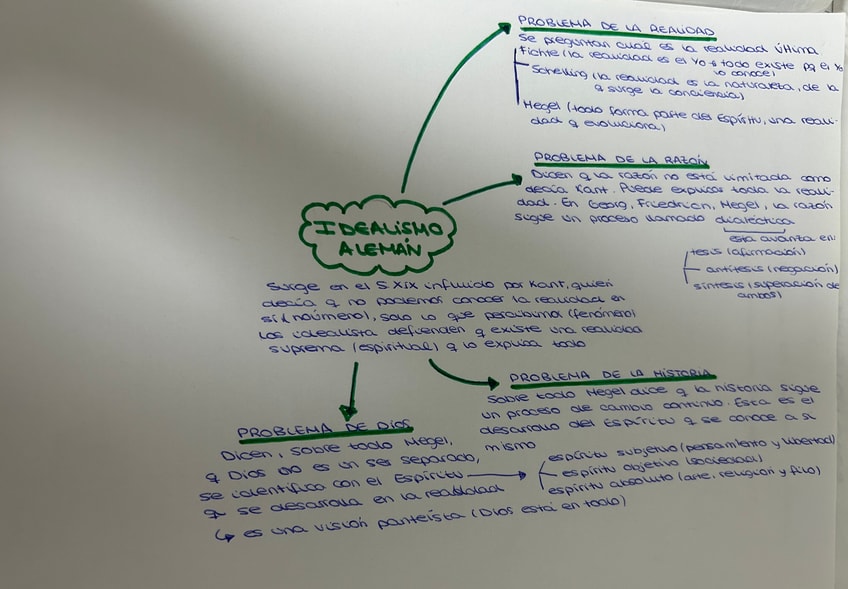 PROBLEMA DE LA REALIDAD
Se preguntan cual es la realidad última
Fichte (la realidad es el Yo y todo existe pq el Yo
lo conoce)
Schelling (la realidad es la naturaleza, de la
q surge la conciencia)
Hegel (todo forma parte del Espíritu, una reali-
dad q evoluciona)
PROBLEMA DE LA RAZÓN
Dicen q la razón no está limitada como
decía Kant. Puede explicar toda la reali-
dad. En Georg, Friedrich, Hegel, la razón
sigue un proceso llamado dialéctica
esta avanza en
tesis (afirmación)
antítesis (negación)
síntesis (superación de
ambos)
IDEALISMO
ALEMÁN
Surge en el S XIX influido por Kant, quien
decía q no podemos conocer la realidad en
sí (noúmeno), solo lo que percibimos (fenómeno)
Los idealista defienden q existe una realidad
suprema (espiritual) q lo explica todo
PROBLEMA DE LA HISTORIA
Sobre todo Hegel dice q la historia sigue
un proceso de cambio continuo. Esta es el
desarrollo del Espíritu q se conoce a sí
mismo
espíritu subjetivo (pensamiento y libertad)
espíritu objetivo (sociedad)
espíritu absoluto (arte, religión y filo)
PROBLEMA DE DIOS
Dicen, sobre todo Hegel,
q Dios no es un ser separado,
se identifica con el Espíritu
q se desarrolla en la realidad
es una visión panteísta (Dios está en todo)